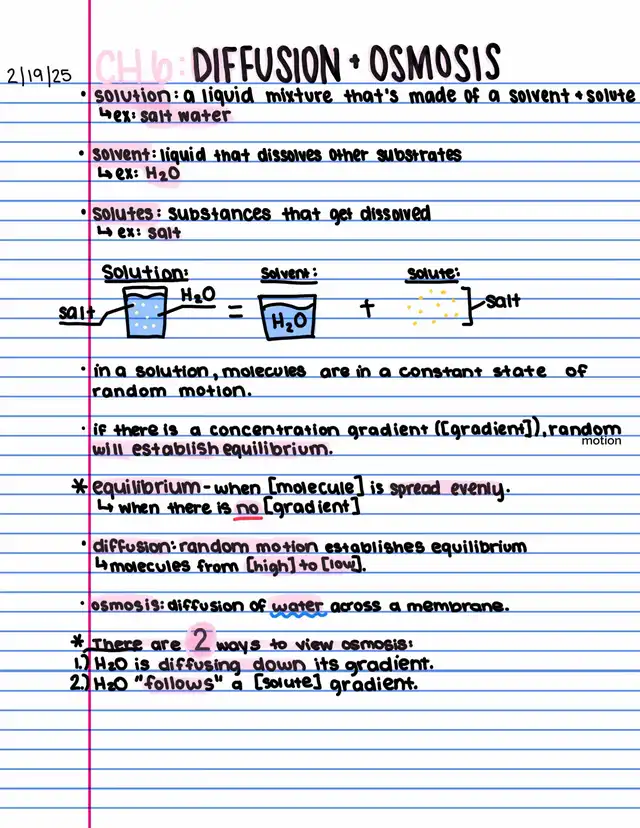 2/19/25 CH 6: DIFFUSION + OSMOSIS
• solution: a liquid mixture that's made of a solvent + solute
↳ ex: salt water
• solvent: liquid that dissolves other substrates
↳ ex: H₂O
• solutes: substances that get dissolved
↳ ex: salt
Solution: Solvent: solute:
salt H₂O = H₂O + salt
• in a solution, molecules are in a constant state of
random motion.
• if there is a concentration gradient ([gradient]), random
motion
will establish equilibrium.
* equilibrium - when [molecule] is spread evenly.
↳ when there is no [gradient]
• diffusion: random motion establishes equilibrium
↳ molecules from [high] to [low].
• osmosis: diffusion of water across a membrane.
* There are 2 ways to view osmosis:
1.) H₂O is diffusing down its gradient.
2.) H₂O "follows" a [solute] gradient.